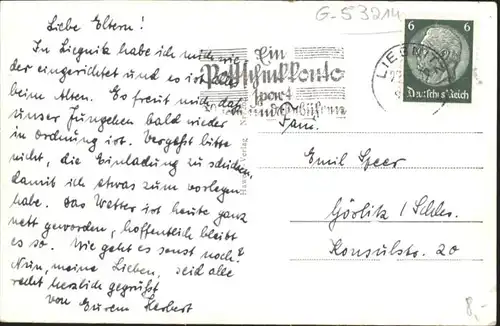 G-53214
Liebe Eltern!
In Liegnitz habe ich mich wie-
der eingerichtet und es ist
beim Alten. Es freut mich, daß
unser Jüngchen bald wieder
in Ordnung ist. Vergeßt bitte
nicht, die Einladung zu schicken,
damit ich etwas zum vorlegen
habe. Das Wetter ist heute ganz
nett geworden, hoffentlich bleibt
es so. Wie geht es sonst noch?
Nun, meine Lieben, seid alle
recht herzlich gegrüßt
von Eurem Herbert
Ein
Postscheckkonto
spart
Zeit und Gebühren
LIEGNITZ
6 6
Deutsches Reich
Verlag
Fam.
Emil Speer
Görlitz / Schles.
Konsulstr. 20
8,-